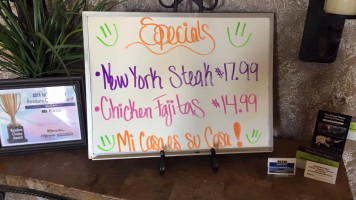 Specials
•New York Steak $17.99
•Chicken Fajitas $14.99
Mi Casa es su Casa!